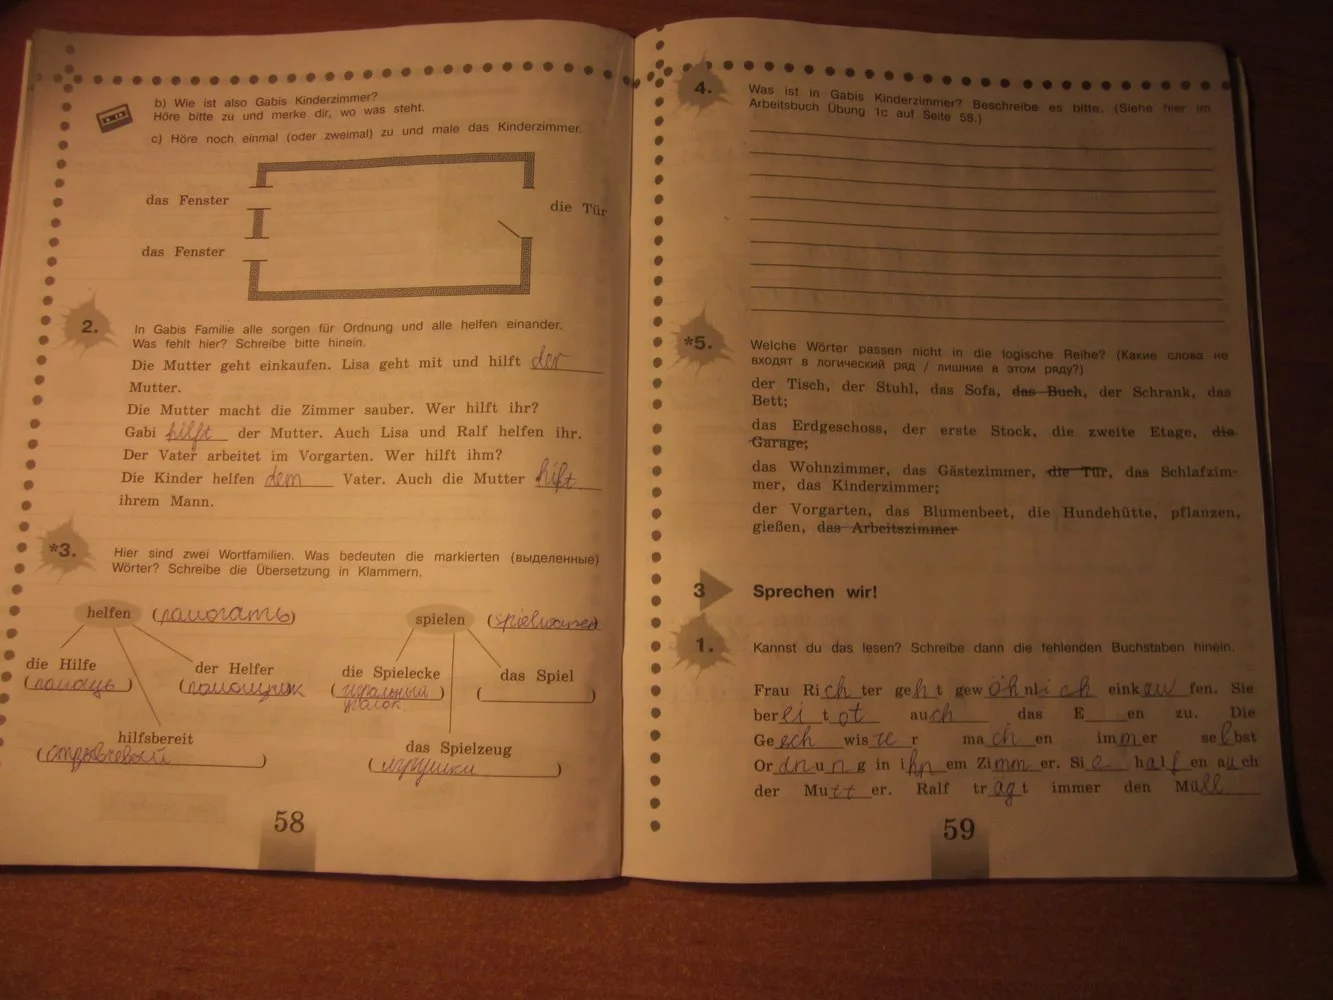 b) Wie ist also Gabis Kinderzimmer?
Höre bitte zu und merke dir, wo was steht.
c) Höre noch einmal (oder zweimal) zu und male das Kinderzimmer.
das Fenster
die Tür
das Fenster
2.
In Gabis Familie alle sorgen für Ordnung und alle helfen einander.
Was fehlt hier? Schreibe bitte hinein.
Die Mutter geht einkaufen. Lisa geht mit und hilft der
Mutter.
Die Mutter macht die Zimmer sauber. Wer hilft ihr?
Gabi hilft der Mutter. Auch Lisa und Ralf helfen ihr.
Der Vater arbeitet im Vorgarten. Wer hilft ihm?
Die Kinder helfen dem Vater. Auch die Mutter hift
ihrem Mann.
*3.
Hier sind zwei Wortfamilien. Was bedeuten die markierten (выделенные)
Wörter? Schreibe die Übersetzung in Klammern.
helfen (помогать)
spielen
die Hilfe
(помощь)
der Helfer
(помощник
die Spielecke
(игральный)
уголок
das Spiel
( )
hilfsbereit
das Spielzeug
(игрушки )
58
4.
Was ist in Gabis Kinderzimmer? Beschreibe es bitte. (Siehe hier im
Arbeitsbuch Übung 1c auf Seite 58.)
*5.
Welche Wörter passen nicht in die logische Reihe? (Какие слова не
входят в логический ряд / лишние в этом ряду?)
der Tisch, der Stuhl, das Sofa, das Buch, der Schrank, das
Bett;
das Erdgeschoss, der erste Stock, die zweite Etage, die
Garage;
das Wohnzimmer, das Gästezimmer, die Tür, das Schlafzim-
mer, das Kinderzimmer;
der Vorgarten, das Blumenbeet, die Hundehütte, pflanzen,
gießen, das Arbeitszimmer
3 Sprechen wir!
1.
Kannst du das lesen? Schreibe dann die fehlenden Buchstaben hinein.
Frau Ri ch ter ge h t gew öh nl ich eink au fen. Sie
ber ei t ot au ch das E___en zu. Die
Ge sch wis te r ma ch en im m er se l bst
Or dn u n g in i hn em Zi mm er. Si e h a l f en a u ch
der Mu tt er. Ralf tr äg t immer den Mü ll
59